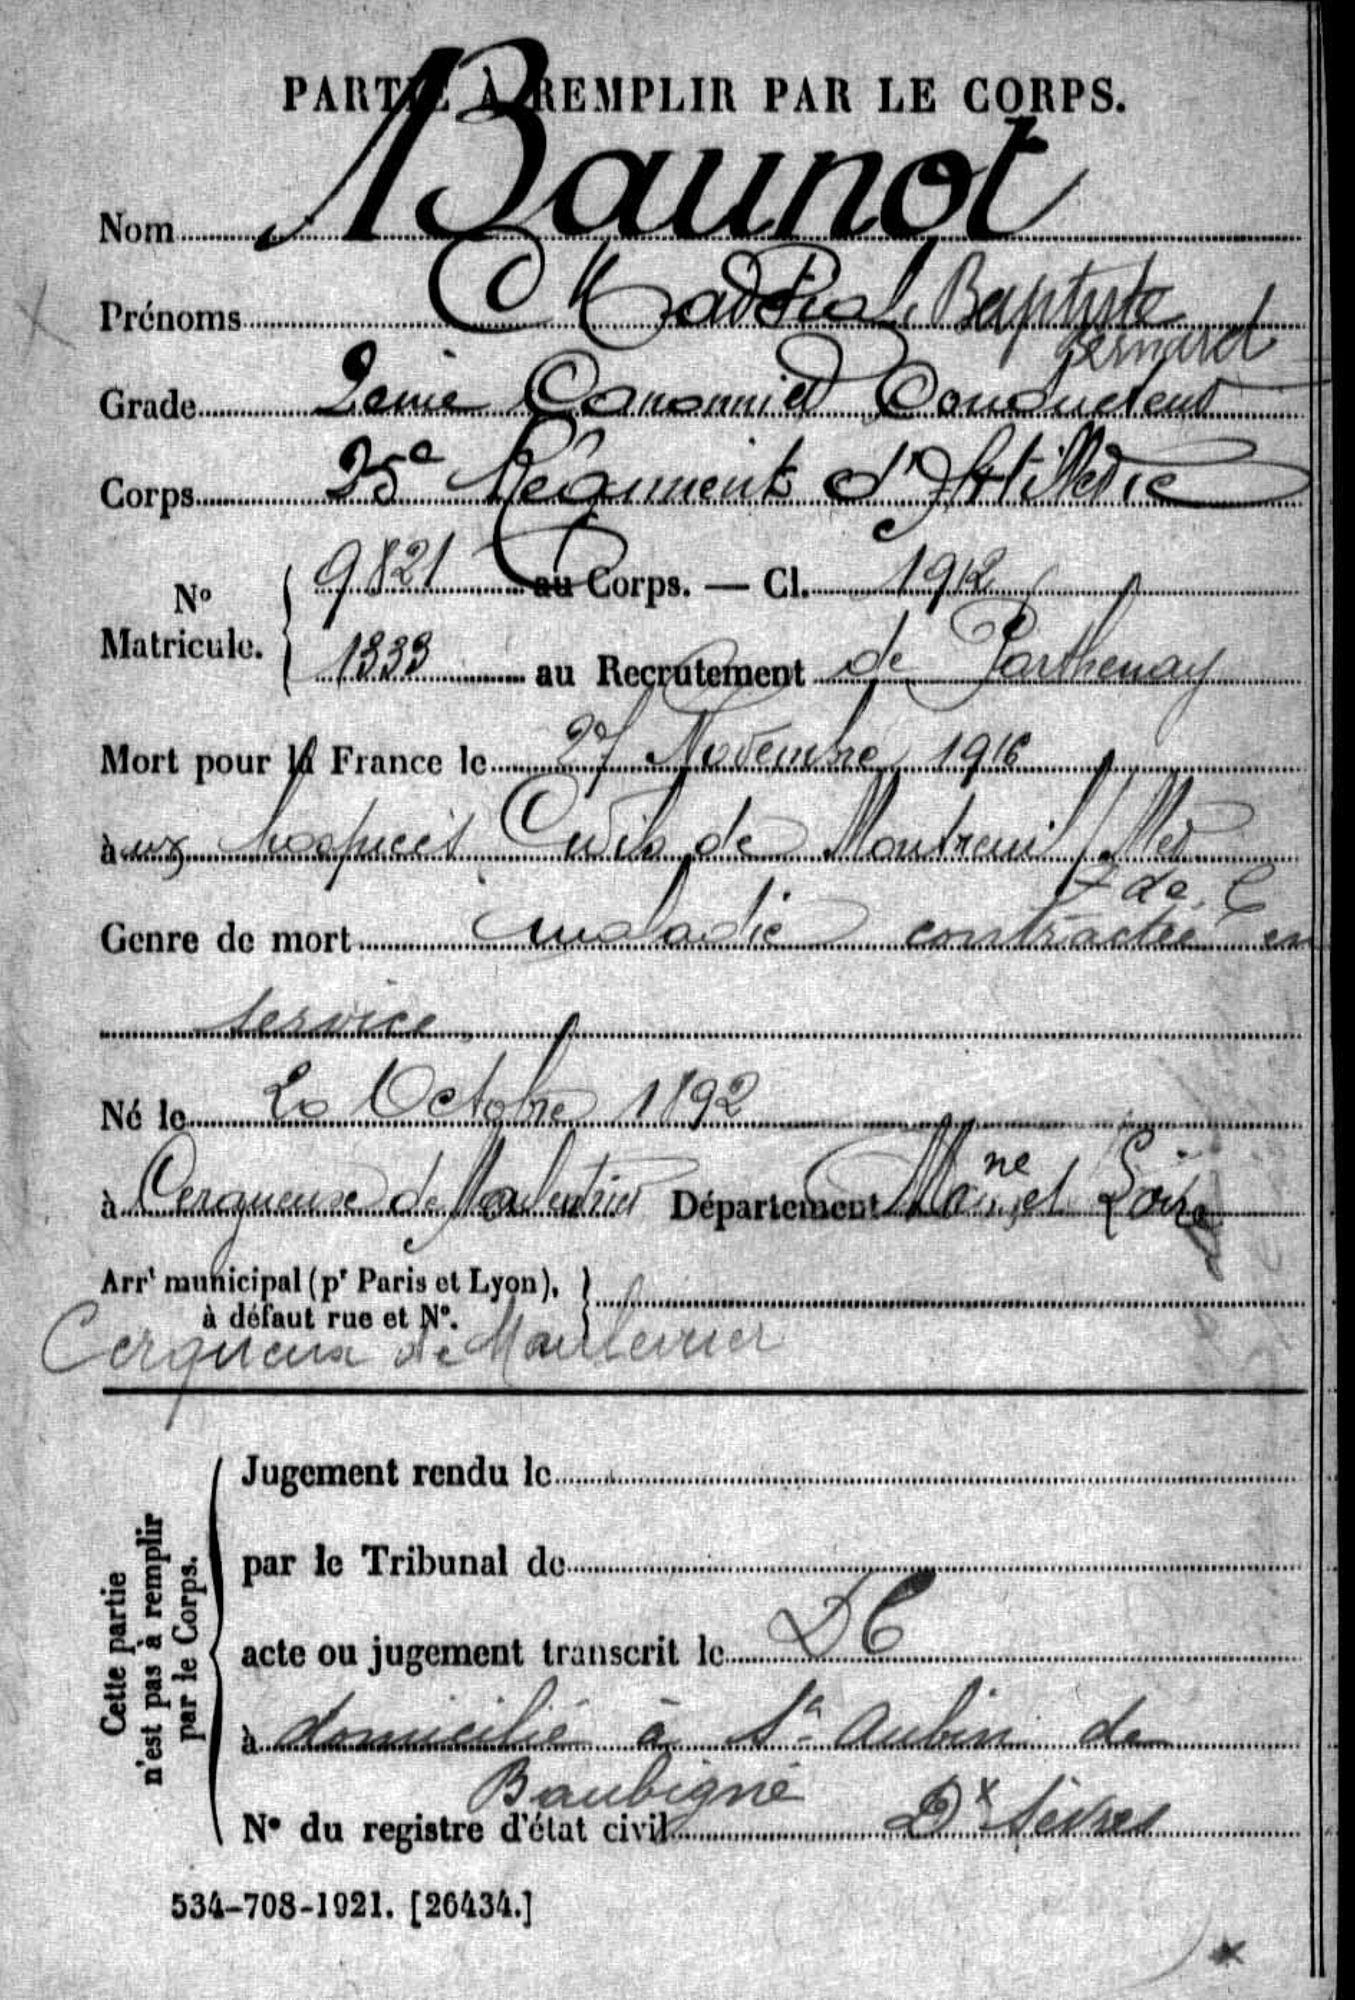 PARTIE À REMPLIR PAR LE CORPS.
Nom Baunot
Prénoms Martial, Baptiste
Bernard
Grade 2ème Canonnier Conducteur
Corps 35e Régiment d'Artillerie
No Matricule. 9821 au Corps. — Cl. 1912
1333 au Recrutement de Parthenay
Mort pour la France le 27 Novembre 1916
aux hospices Civils de Montreuil / Mer
P de C
Genre de mort maladie contractée en
service
Né le 20 Octobre 1892
à Cerqueuse de Maulevrier Département Maine et Loire
Arrt municipal (pr Paris et Lyon),
à défaut rue et No.
Cerqueux de Maulevrier
Cette partie n'est pas à remplir par le Corps.
Jugement rendu le
par le Tribunal de
acte ou jugement transcrit le DC
à domicilié à St Aubin de
Baubigné
No du registre d'état civil Dx Sèvres
534-708-1921. [26434.]